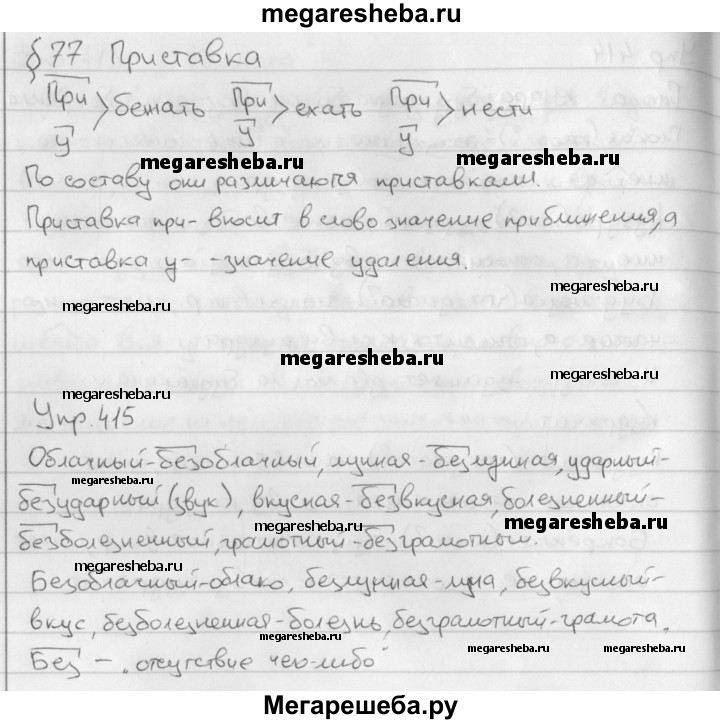 megaresheba.ru
§ 77 Приставка
При
У
> бежать
При
У
> ехать
При
У
> нести
megaresheba.ru
megaresheba.ru
По составу они различаются приставками.
Приставка при- вносит в слово значение приближения, а
приставка у- -значение удаления.
megaresheba.ru
megaresheba.ru
megaresheba.ru
megaresheba.ru
megaresheba.ru
Упр. 415
Облачный-безоблачный, лунная-безлунная, ударный-
megaresheba.ru
безударный (звук), вкусная-безвкусная, болезненный-
megaresheba.ru
megaresheba.ru
безболезненный, грамотный-безграмотный.
megaresheba.ru
Безоблачный-облако, безлунная-луна, безвкусный-
вкус, безболезненная-болезнь, безграмотный-грамота.
megaresheba.ru
Без - „отсутствие чего-либо“
megaresheba.ru
megaresheba.ru
Мегарешеба.ру